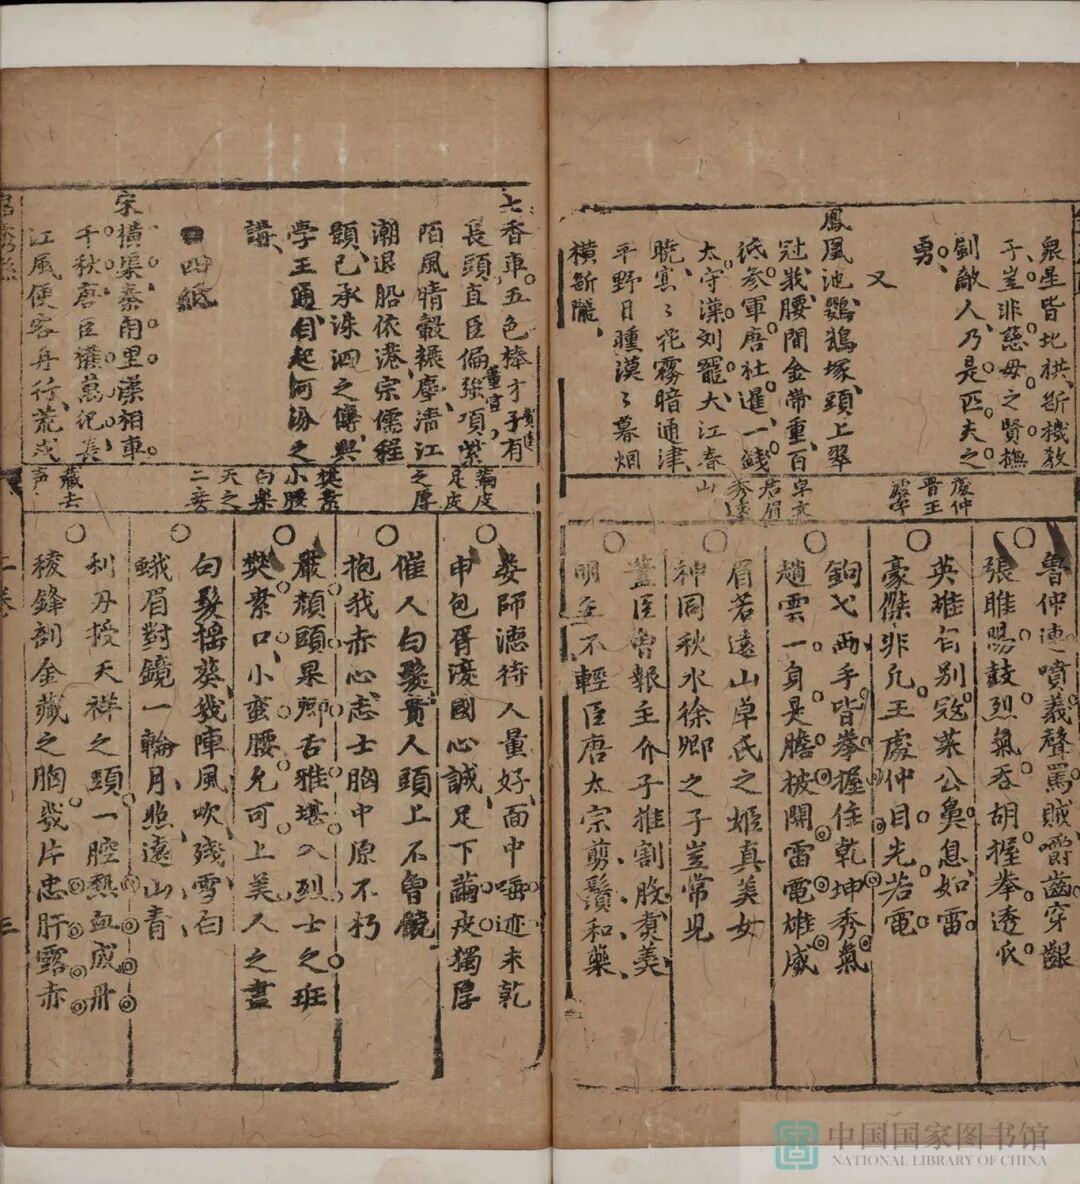 泉星皆地拱、断機教
子。豈非慈母之賢、撫
劍敵人、乃是匹夫之
勇。
又
鳳凰池、鸚鵡塚、頭上翠
冠我、腰間金帶重、百
紙參軍唐杜暹、一錢
太守漢刘寵、大江春
曉、寞〻花霧暗通津、
平野日曛、漠〻暮烟
橫斷隴、
虞仲
晋王
處
卓文
君眉
秀遠
山
魯仲連噴義聲罵賊嚼齒穿齦
張睢陽鼓烈氣吞胡握拳透爪
英雄有別冠萊公鼻息如雷
豪傑非凡王處仲目先若電
鉤弋两手皆拳握住乾坤秀氣
趙雲一身是膽披開雷電雄威
眉若遠山卓氏之姬真美女
神同秋水徐卿之子豈常児
藎臣曾報主介子推割股煑羮
明主不輕臣唐太宗剪鬚和藥
七香車、五色棒、才子有
賈逵
長頭、直臣偏強項、紫
董宣
陌風晴穀輾塵、清江
潮退船依港、宗儒程
頤、已承洙泗之傳、興
學王通、肯起河汾之
講、
四紙
宋橫渠、秦甪里、漢相車
千秋、唐臣權萬纪、長
江風便客舟行、荒戍
繭皮
足皮
之厚
樊素
小腰
白樂
天之
二妾
藏去
声
婁師德待人量好、面中唾迹未乾
申包胥濟國心誠、足下繭皮獨厚
催人白髮、貴人頭上不曾饒
抱我赤心、志士胸中原不朽
嚴顏頭、杲卿舌、雅堪入烈士之班
樊素口、小蛮腰、允可上美人之畫
白髮搔葵、幾陣風吹残雪白
蛾眉對鏡、一輪月照遠山青
利刃授天祥之頭、一腔熱血成丹
稜鋒剖金藏之胸、幾片忠肝露赤
二卷
三
中国国家图书馆
NATIONAL LIBRARY OF CHINA